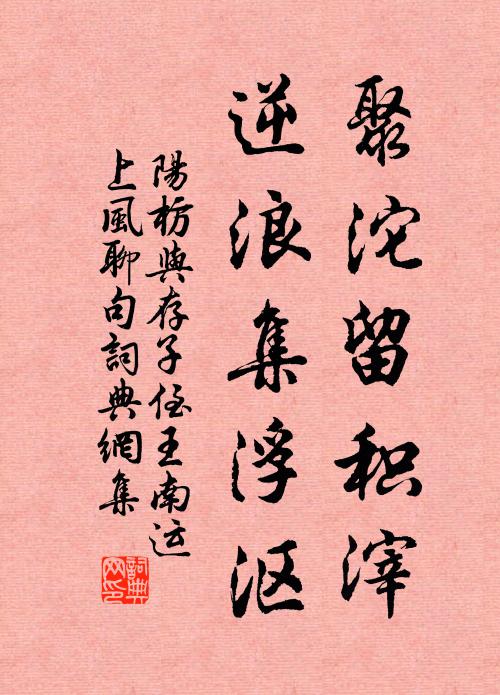 聚沱留积滓
逆浪集浮沤
陽枋與存子侄王南运
上風聊句詞典網集
詞典
网印